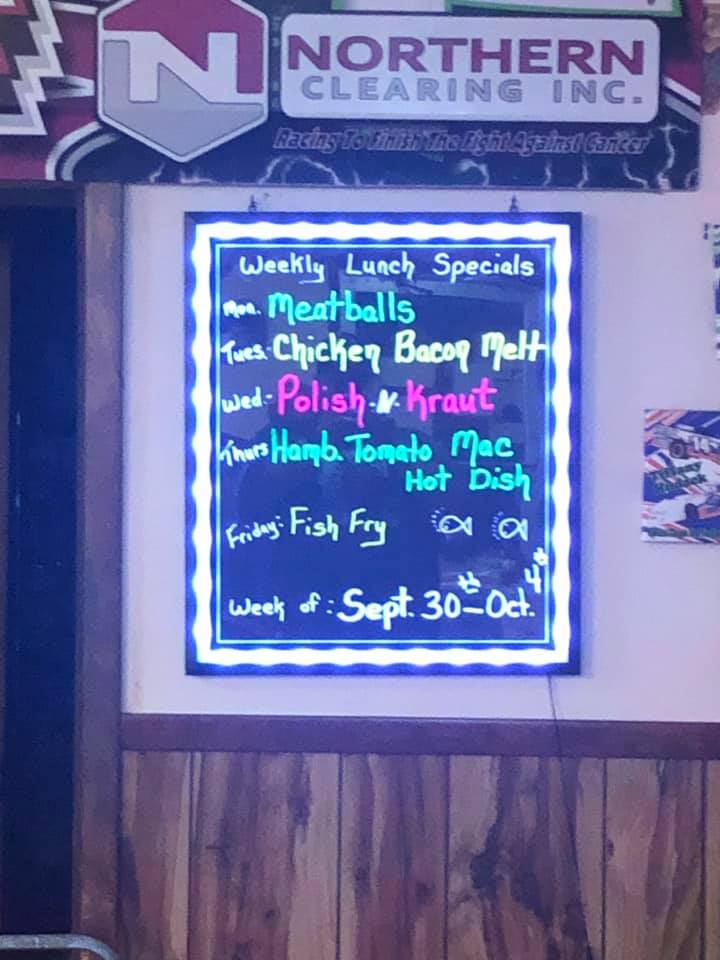 NORTHERN
CLEARING INC.
Racing To Finish The Fight Against Cancer
Weekly Lunch Specials
Mon. Meatballs
Tues. Chicken Bacon Melt
Wed.- Polish-N-Kraut
Thurs Hamb. Tomato Mac
Hot Dish
Friday: Fish Fry
Week of: Sept. 30th-Oct. 4th
14